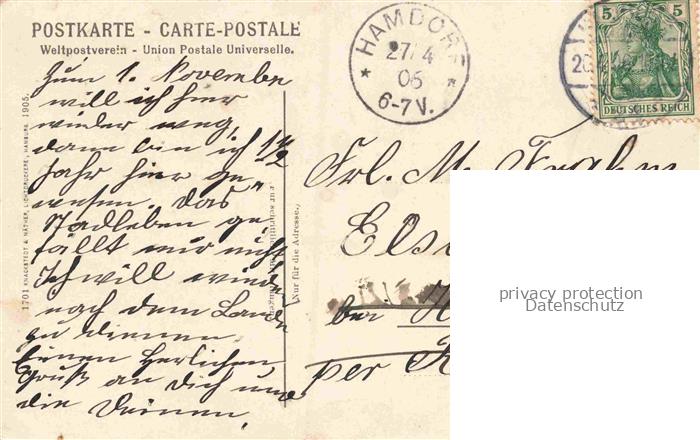 POSTKARTE - CARTE-POSTALE
Weltpostverein - Union Postale Universelle.
Zum 1. November
will ich hier
wieder weg,
dann bin ich 1 1/2
Jahr hier ge-
wesen. Das
Stadleben ge-
fällt mir nicht
Ich will wieder
nach dem Lande
zu dienen.
Einen Herlichen
Gruß an Dich und
die Deinen.
1701 KNACKSTEDT & NÄTHER, LICHTDRUCKEREI, HAMBURG. 1905.
Nur für die Adresse.
HAMDORF
27/4
06
6-7V.
5 5
DEUTSCHES REICH
Frl. M. Frahm
bei
per
privacy protection
Datenschutz